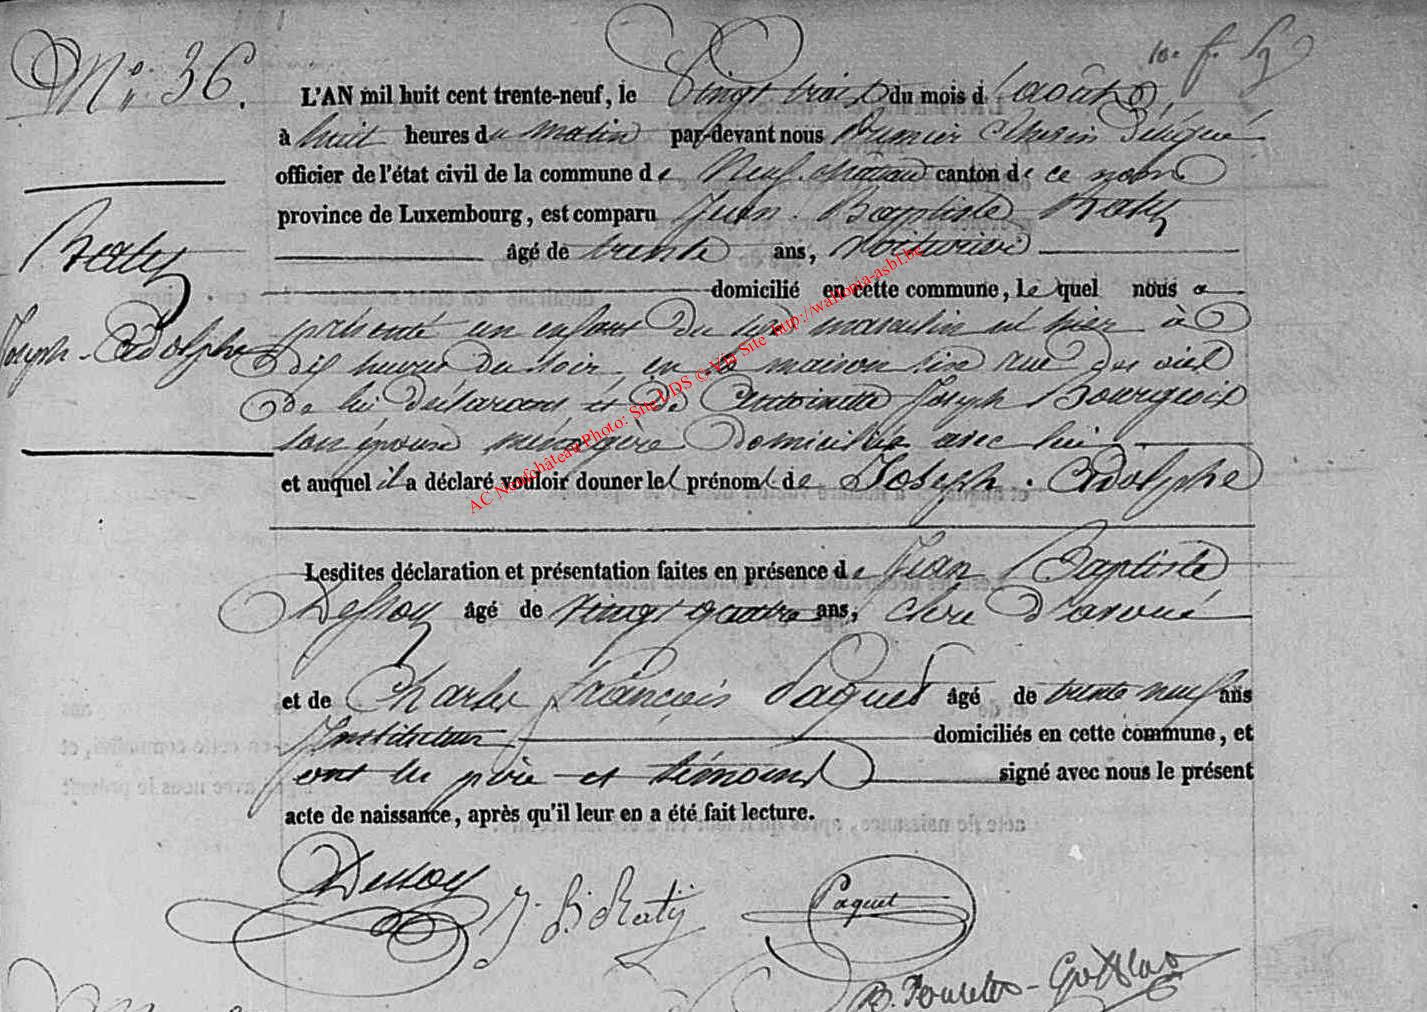 N° 36.
L'AN mil huit cent trente-neuf, le Vingt trois du mois d'août,
à huit heures du matin par-devant nous premier Echevin délégué
officier de l'état civil de la commune de Neufchâteau canton de ce nom
province de Luxembourg, est comparu Jean-Baptiste Raty
âgé de trente ans, voiturier
domicilié en cette commune, lequel nous a
présenté un enfant du sexe masculin né hier à
dix heures du soir en sa maison sise rue
de lui déclarant et de Antoinette Joseph Bourgeois
son épouse ménagère domiciliée avec lui
et auquel il a déclaré vouloir donner les prénoms de Joseph-Adolphe
Raty
Joseph-Adolphe
Lesdites déclaration et présentation faites en présence de Jean Baptiste
Dessoy âgé de vingt quatre ans, clerc d'avoué
et de Charles François Paquet âgé de trente neuf ans
Instituteur domiciliés en cette commune, et
ont les père et témoins signé avec nous le présent
acte de naissance, après qu'il leur en a été fait lecture.
Dessoy J. B. Raty Paquet
AC Neufchâteau Photo: Site LDS © Via Site http://wallonia-asbl.be